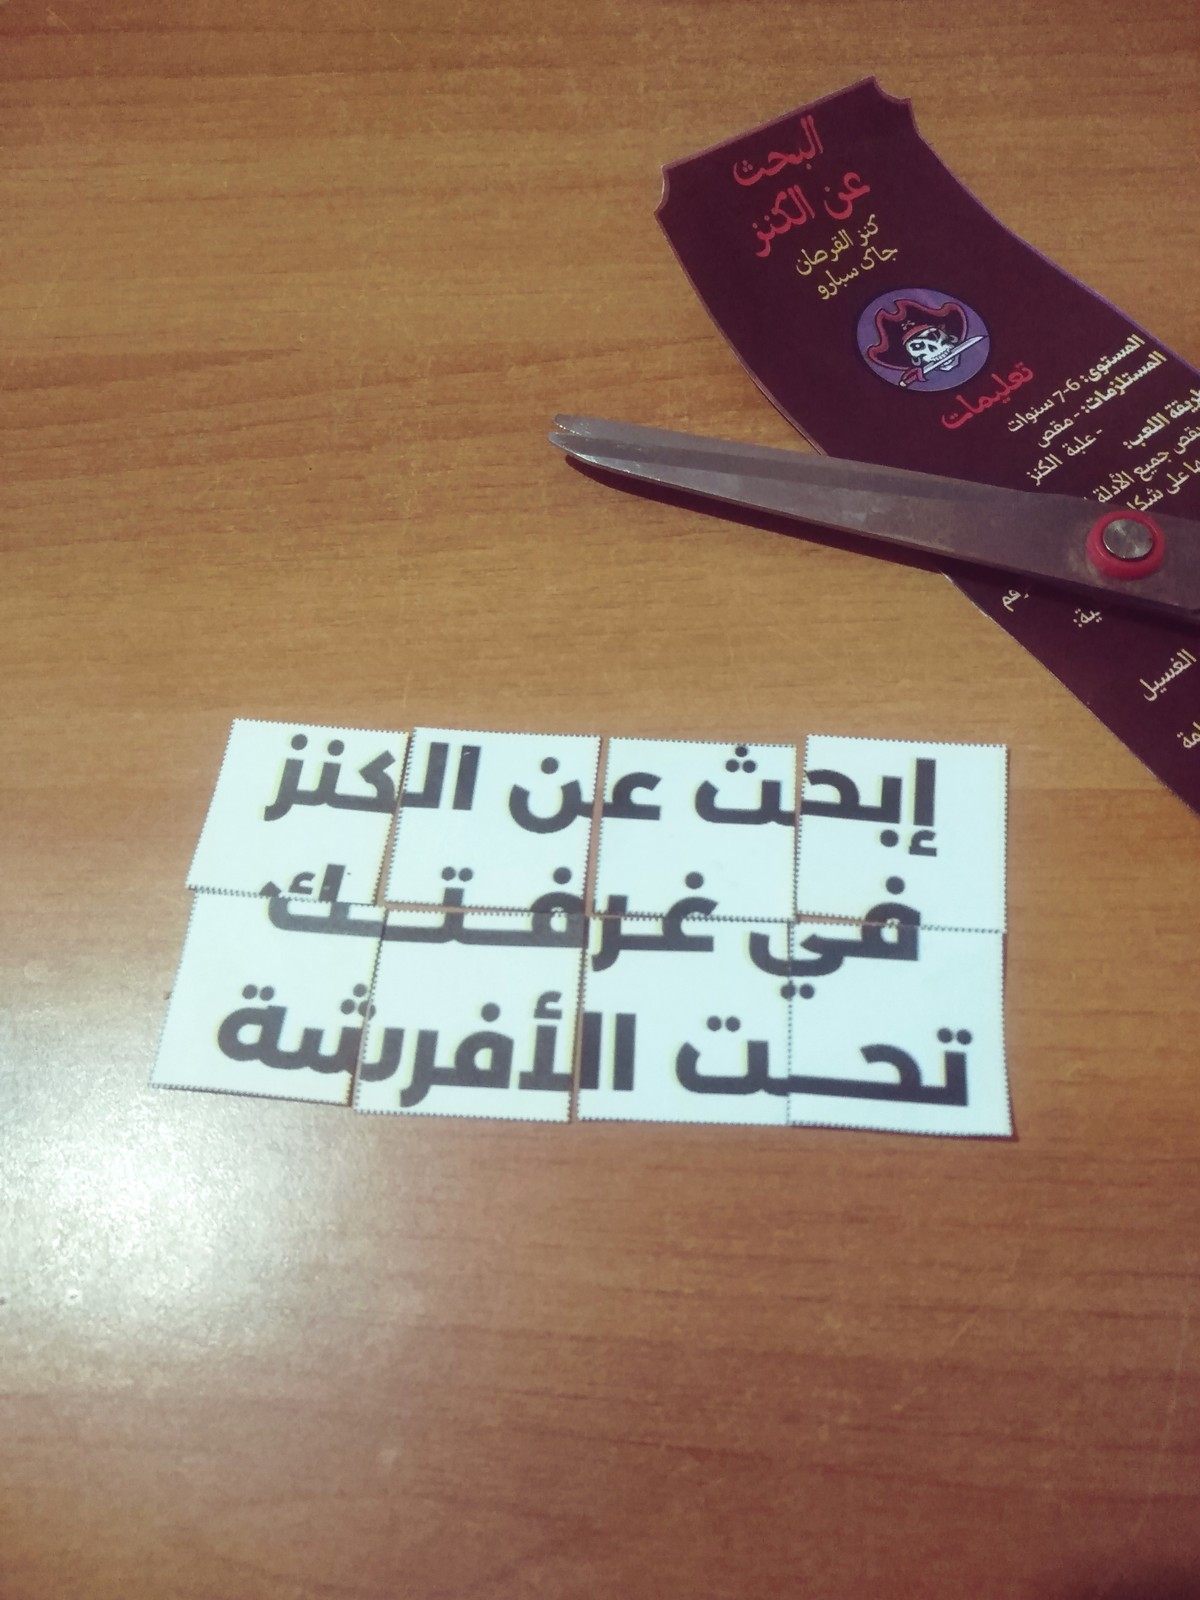 البحث
عن الكنز
كنز القرصان
جاك سبارو
تعليمات
المستوى: 6-7 سنوات
المستلزمات: - مقص
- علبة الكنز
طريقة اللعب:
جميع الأدلة
على
الغسيل
إبحث عن الكنز
في غرفتـك
تحـت الأفرشة